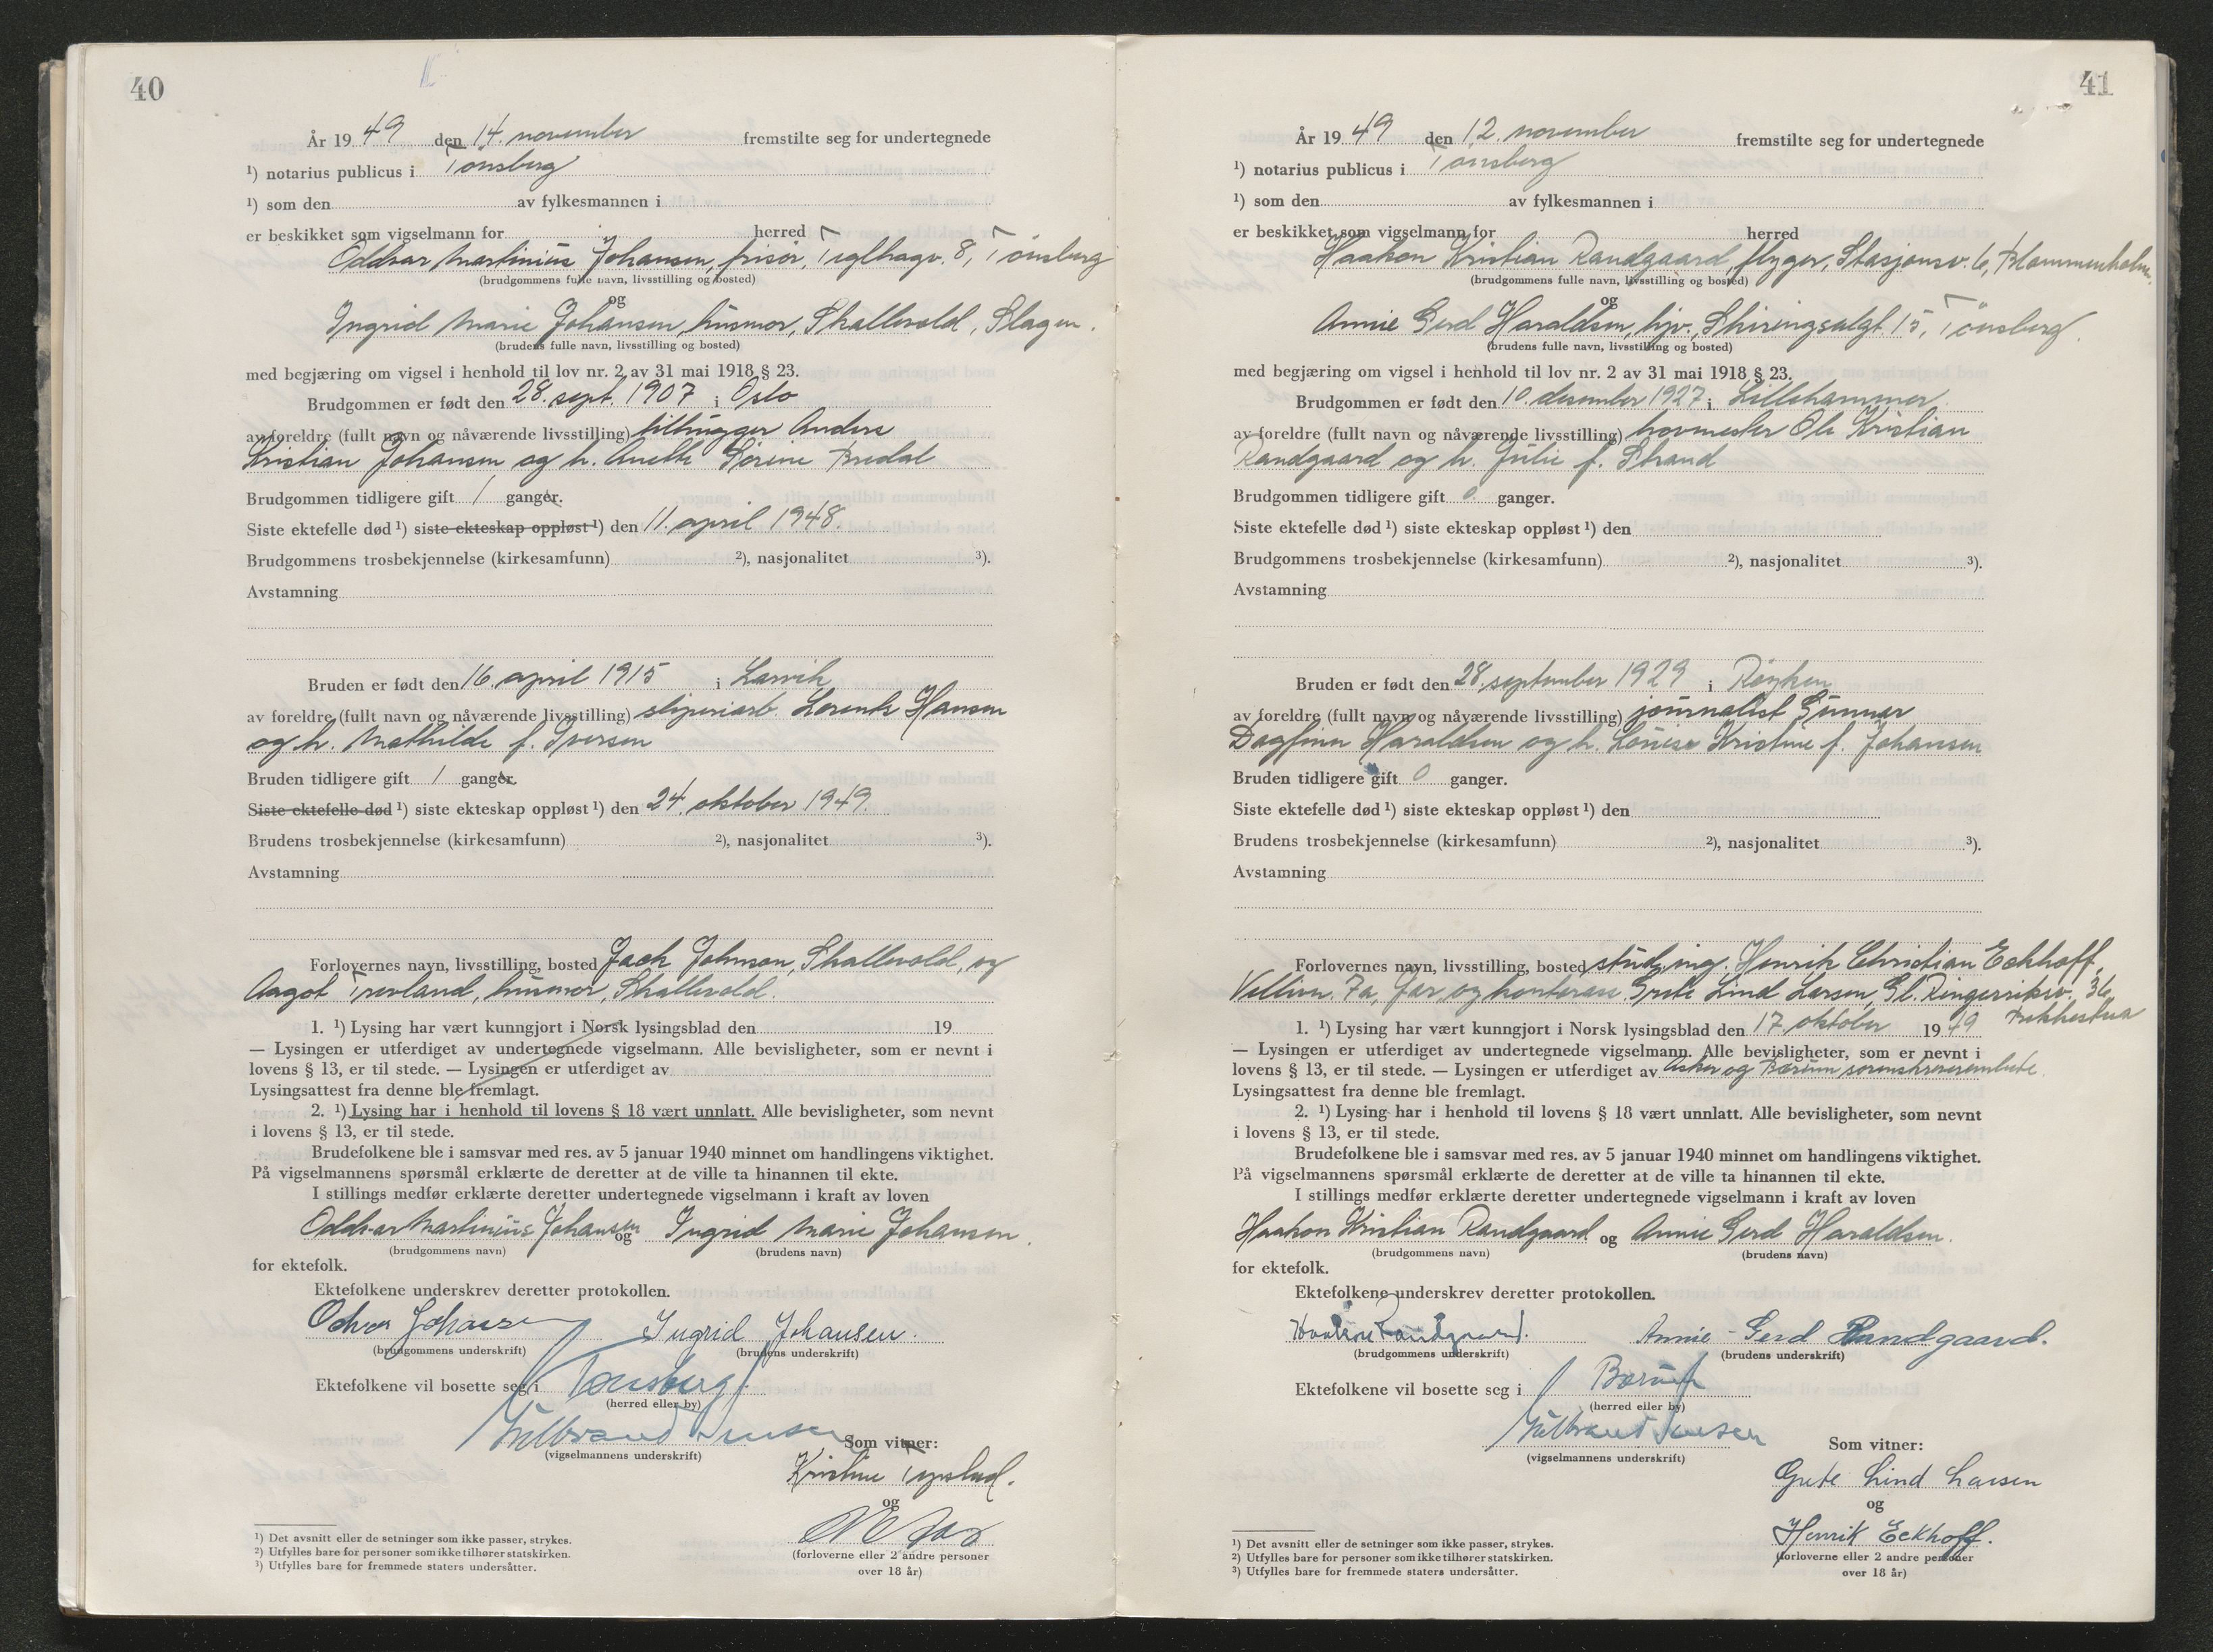 40
År 1949 den 14. november fremstilte seg for undertegnede
¹) notarius publicus i Tönsberg
¹) som den av fylkesmannen i
er beskikket som vigselmann for herred
Oddvar Martinius Johansen, frisör, Teglhagv. 8, Tönsberg
(brudgommens fulle navn, livsstilling og bosted)
og
Ingrid Marie Johansen, husmor, Skallevold, Slagen.
(brudens fulle navn, livsstilling og bosted)
med begjæring om vigsel i henhold til lov nr. 2 av 31 mai 1918 § 23.
Brudgommen er født den 28. sept. 1907 i Oslo
av foreldre (fullt navn og nåværende livsstilling) Anders
Kristian Johansen og h. Anette Sörine Bredal
Brudgommen tidligere gift 1 ganger.
Siste ektefelle død ¹) siste ekteskap oppløst ¹) den 11. april 1948.
Brudgommens trosbekjennelse (kirkesamfunn) ²), nasjonalitet ³).
Avstamning
Bruden er født den 16. april 1915 i Larvik
av foreldre (fullt navn og nåværende livsstilling) sliperiarb. Lorentz Hansen
og h. Mathilde f. Iversen
Bruden tidligere gift 1 ganger.
Siste ektefelle død ¹) siste ekteskap oppløst ¹) den 24. oktober 1949.
Brudens trosbekjennelse (kirkesamfunn) ²), nasjonalitet ³).
Avstamning
Forlovernes navn, livsstilling, bosted Jack Johnson, Skallevold, og
Aagot Trevland, husmor, Skallevold.
1. ¹) Lysing har vært kunngjort i Norsk lysingsblad den 19
— Lysingen er utferdiget av undertegnede vigselmann. Alle bevisligheter, som er nevnt i
lovens § 13, er til stede. — Lysingen er utferdiget av
Lysingsattest fra denne ble fremlagt.
2. ¹) Lysing har i henhold til lovens § 18 vært unnlatt. Alle bevisligheter, som nevnt
i lovens § 13, er til stede.
Brudefolkene ble i samsvar med res. av 5 januar 1940 minnet om handlingens viktighet.
På vigselmannens spørsmål erklærte de deretter at de ville ta hinannen til ekte.
I stillings medfør erklærte deretter undertegnede vigselmann i kraft av loven
Oddvar Martinius Johansen og Ingrid Marie Johansen.
(brudgommens navn) (brudens navn)
for ektefolk.
Ektefolkene underskrev deretter protokollen.
Oddvar Johansen Ingrid Johansen.
(brudgommens underskrift) (brudens underskrift)
Ektefolkene vil bosette seg i Tønsberg
(herred eller by)
(vigselmannens underskrift)
Som vitner:
Kristine
og
(forloverne eller 2 andre personer
over 18 år)
¹) Det avsnitt eller de setninger som ikke passer, strykes.
²) Utfylles bare for personer som ikke tilhører statskirken.
³) Utfylles bare for fremmede staters undersåtter.
41
År 1949 den 12. november fremstilte seg for undertegnede
¹) notarius publicus i Tönsberg
¹) som den av fylkesmannen i
er beskikket som vigselmann for herred
Haakon Kristian Randgaard, flyger, Stasjonsv. 6, Blommenholm,
(brudgommens fulle navn, livsstilling og bosted)
og
Annie Gerd Haraldsen, hjv., Skiringsalgt. 15, Tönsberg.
(brudens fulle navn, livsstilling og bosted)
med begjæring om vigsel i henhold til lov nr. 2 av 31 mai 1918 § 23.
Brudgommen er født den 10. desember 1927 i Lillehammer.
av foreldre (fullt navn og nåværende livsstilling) hovmester Ole Kristian
Randgaard og h. Julie f. Strand
Brudgommen tidligere gift 0 ganger.
Siste ektefelle død ¹) siste ekteskap oppløst ¹) den
Brudgommens trosbekjennelse (kirkesamfunn) ²), nasjonalitet ³).
Avstamning
Bruden er født den 28. september 1929 i Röyken
av foreldre (fullt navn og nåværende livsstilling) journalist Gunnar
Dagfinn Haraldsen og h. Louise Kristine f. Johansen
Bruden tidligere gift 0 ganger.
Siste ektefelle død ¹) siste ekteskap oppløst ¹) den
Brudens trosbekjennelse (kirkesamfunn) ²), nasjonalitet ³).
Avstamning
Forlovernes navn, livsstilling, bosted stud. ing. Henrik Christian Eckhoff,
7a, Jar og kontorass. Grete Lind Larsen, Gl. Ringeriksv. 36
Bekkestua
1. ¹) Lysing har vært kunngjort i Norsk lysingsblad den 17. oktober 1949
— Lysingen er utferdiget av undertegnede vigselmann. Alle bevisligheter, som er nevnt i
lovens § 13, er til stede. — Lysingen er utferdiget av Asker og Bærum sorenskriverembete.
Lysingsattest fra denne ble fremlagt.
2. ¹) Lysing har i henhold til lovens § 18 vært unnlatt. Alle bevisligheter, som nevnt
i lovens § 13, er til stede.
Brudefolkene ble i samsvar med res. av 5 januar 1940 minnet om handlingens viktighet.
På vigselmannens spørsmål erklærte de deretter at de ville ta hinannen til ekte.
I stillings medfør erklærte deretter undertegnede vigselmann i kraft av loven
Haakon Kristian Randgaard og Annie Gerd Haraldsen.
(brudgommens navn) (brudens navn)
for ektefolk.
Ektefolkene underskrev deretter protokollen.
Haakon Randgaard. Annie-Gerd Randgaard.
(brudgommens underskrift) (brudens underskrift)
Ektefolkene vil bosette seg i Bærum
(herred eller by)
(vigselmannens underskrift)
Som vitner:
Grete Lind Larsen
og
Henrik Eckhoff.
(forloverne eller 2 andre personer
over 18 år)
¹) Det avsnitt eller de setninger som ikke passer, strykes.
²) Utfylles bare for personer som ikke tilhører statskirken.
³) Utfylles bare for fremmede staters undersåtter.